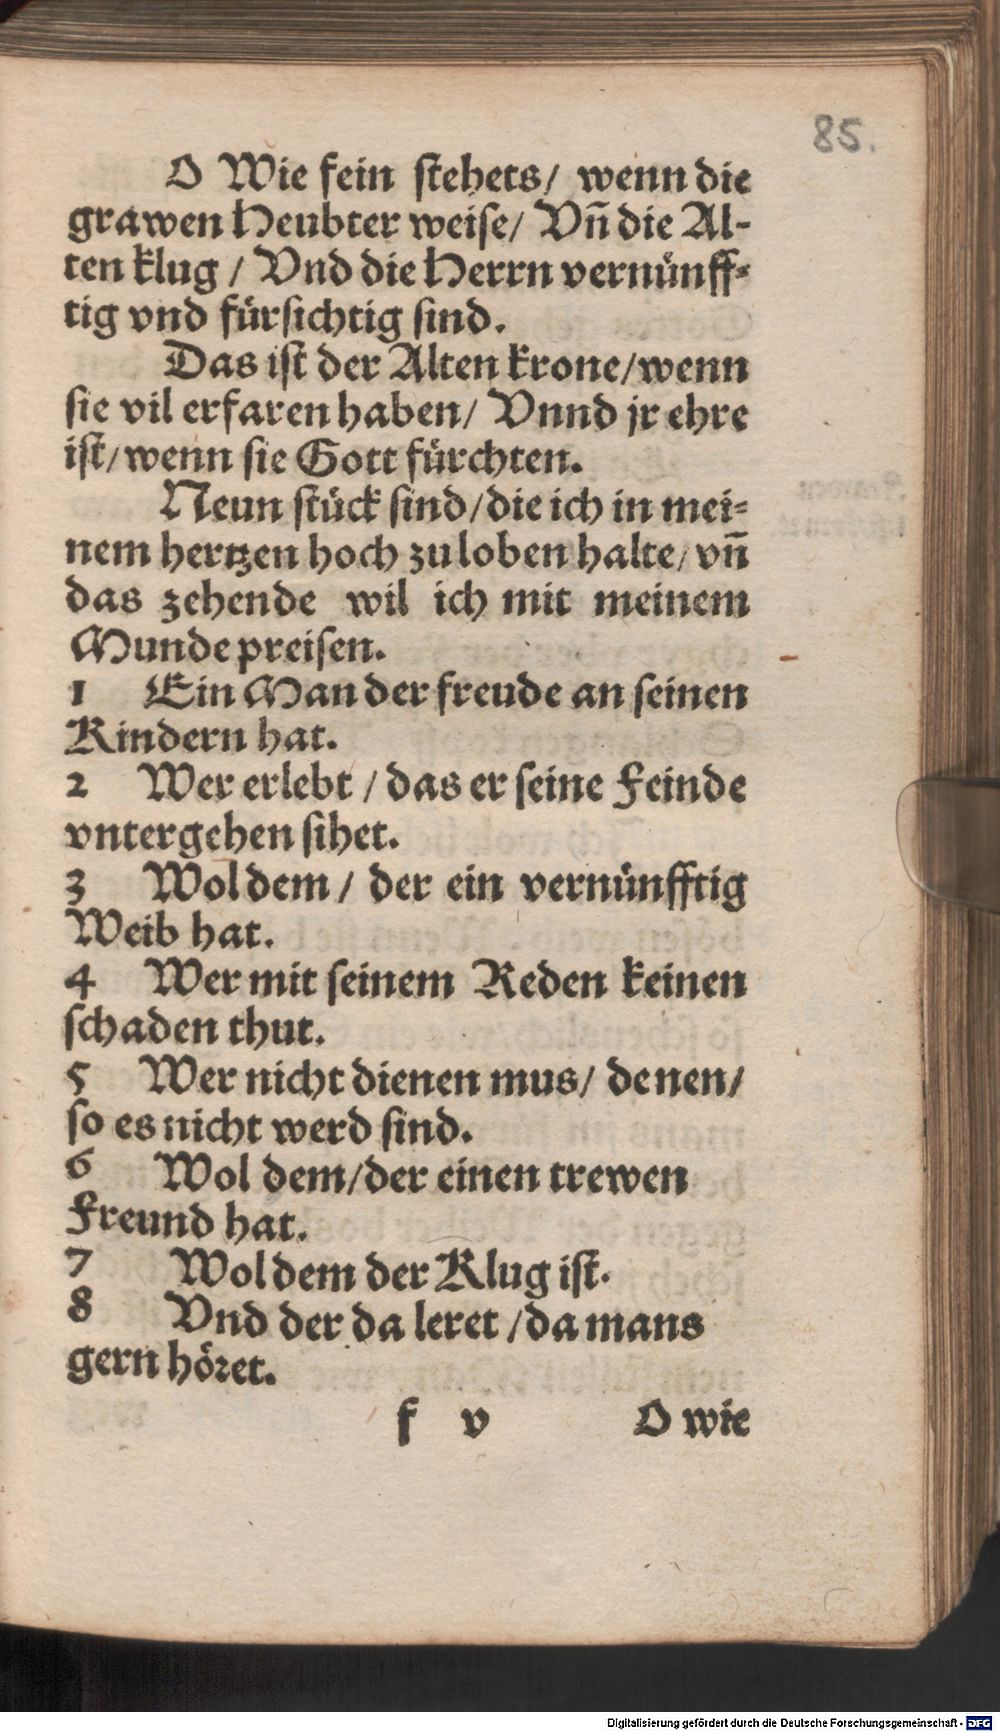 85.
O Wie fein stehets/ wenn die
grawen Heubter weise/ Vñ die Al-
ten klug / Vnd die Herrn vernünff-
tig vnd fürsichtig sind.
Das ist der Alten krone/wenn
sie vil erfaren haben/ Vnnd jr ehre
ist/wenn sie Gott fürchten.
Neun stück sind/die ich in mei-
nem hertzen hoch zu loben halte/ vñ
das zehende wil ich mit meinem
Munde preisen.
1 Ein Man der freude an seinen
Kindern hat.
2 Wer erlebt / das er seine Feinde
vntergehen sihet.
3 Wol dem / der ein vernünfftig
Weib hat.
4 Wer mit seinem Reden keinen
schaden thut.
5 Wer nicht dienen mus/ denen/
so es nicht werd sind.
6 Wol dem/der einen trewen
Freund hat.
7 Wol dem der Klug ist.
8 Vnd der da leret /da mans
gern höret.
f v O wie
Digitalisierung gefördert durch die Deutsche Forschungsgemeinschaft - DFG